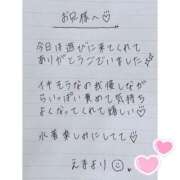 お兄様へ♡
今日は遊びに来てくれて
ありがとうございました
イヤそうなの我慢しながら
いっぱい責めて気持ち
よくなってくれて嬉しい♡
水着楽しみにしてて♡
えまより